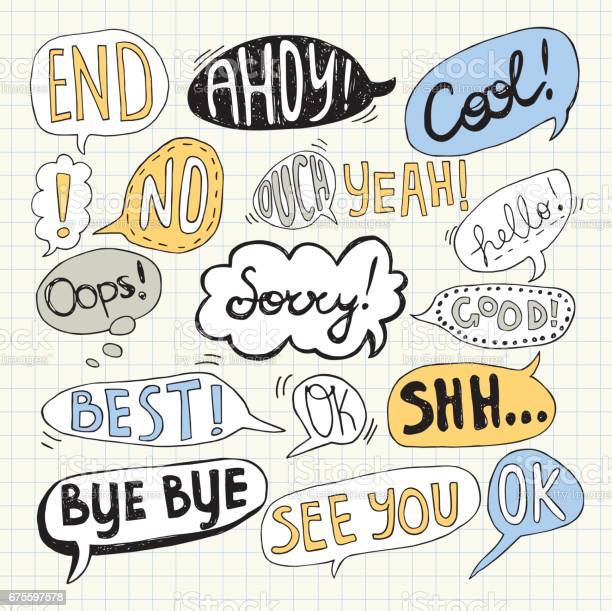 END
AHOY!
Cool!
!
NO
OUCH
YEAH!
hello!
Oops!
Sorry!
GOOD!
BEST!
OK
SHH...
BYE BYE
SEE YOU
OK
iStock
by Getty Images™
675597578